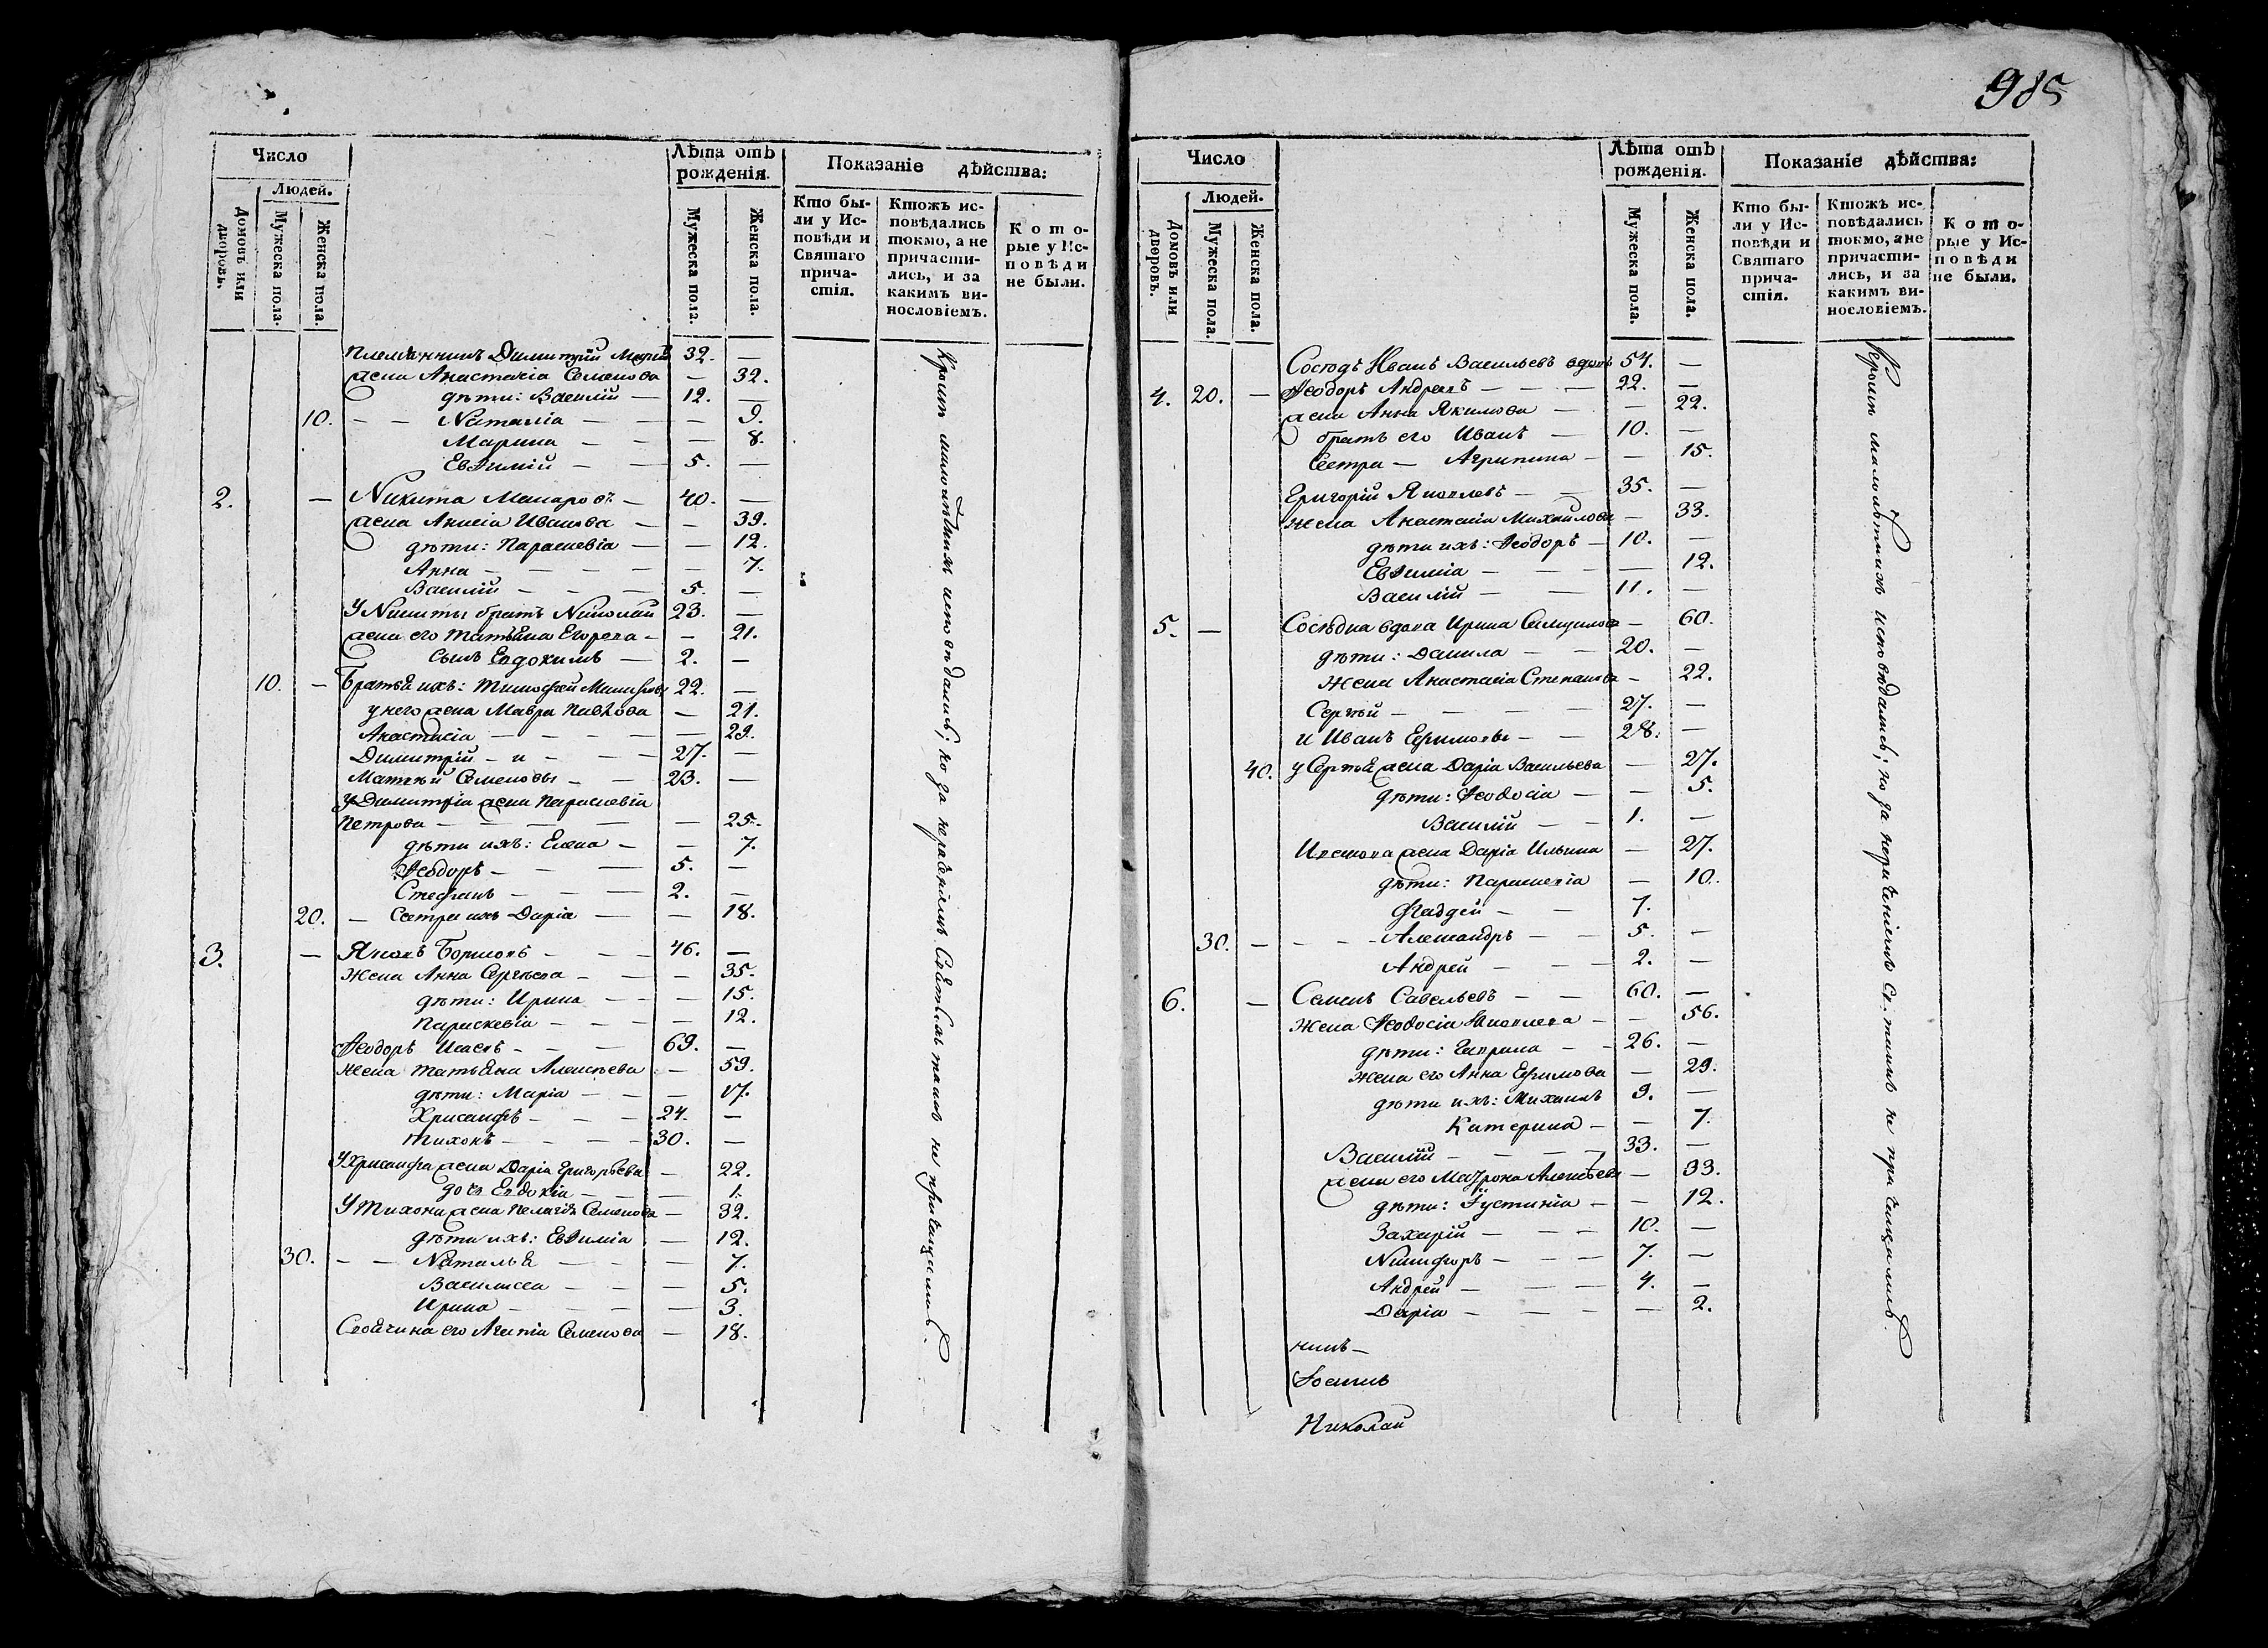 985
Число
Людей.
Домовъ или дворовъ.
Мужеска пола.
Женска пола.
Лѣта отъ рожденія.
Мужеска пола.
Женска пола.
Показаніе дѣйства:
Кто бы-
ли у Ис-
повѣди и
Святаго
прича-
стія.
Ктожъ ис-
повѣдались
токмо, а не
причасти-
лись, и за
какимъ ви-
нословіемъ.
Кото-
рые у Ис-
повѣди
не были.
Племянникъ Димитрій 32. —
жена Анастасія Семенова — 32.
дѣти: Василій — 12. —
10. — — Наталіа — — — 9.
Марина — — — 8.
Евѳимій — — 5. —
2. — Никита Макаровъ — 40. —
жена Анисіа Иванова — — 39.
дѣти: Параскевіа — — 12.
Анна — — — — — 7.
Василій — — — 5. —
У Никиты братъ Николай 23. —
жена его Татьяна Егорова — — 21.
сынъ Евдокимъ — 2. —
10. — Братья ихъ: Тимофей 22. —
у него жена Мавра Павлова — 21.
Анастасіа — — — — — 29.
Димитрій — и — — — 27. —
Матвѣй Семеновы — — 23. —
У Димитріа жена Параскевіа
Петрова — — — — — 25.
дѣти ихъ: Елена — — 7.
Ѳеодоръ — — — 5. —
Стефанъ — — — 2. —
20. — Сестра ихъ Даріа — — 18.
3. — Яковъ Борисовъ — — — 46. —
Жена Анна Сергѣева — — — 35.
дѣти: Ирина — — — 15.
Параскевіа — — — — 12.
Ѳеодоръ Исаевъ — — — 69. —
Жена Татьяна Алексѣева — 59.
дѣти: Маріа — — — 17.
Хрисанфъ — — — 24. —
Тихонъ — — — — 30. —
У Хрисанфа жена Даріа Григорьева — 22.
дочь Евдокіа — — — 1.
У Тихона жена Пелагія Семенова — 32.
дѣти ихъ: Евѳиміа — 12.
30. — — Наталья — — — 7.
Василиса — — — 5.
Ирина — — — — 3.
Своячина его Агапіа Семенова — 18.
Кромѣ малолѣтнихъ исповѣдались; но за нерадѣніемъ Святыхъ таинъ не причащались.
Число
Людей.
Домовъ или дворовъ.
Мужеска пола.
Женска пола.
Лѣта отъ рожденія.
Мужеска пола.
Женска пола.
Показаніе дѣйства:
Кто бы-
ли у Ис-
повѣди и
Святаго
прича-
стія.
Ктожъ ис-
повѣдались
токмо, а не
причасти-
лись, и за
какимъ ви-
нословіемъ.
Кото-
рые у Ис-
повѣди
не были.
Сосѣдъ Иванъ Васильевъ вдовъ 54. —
4. 20. — Ѳеодоръ Андреевъ — — — 22. —
жена Анна Якимова — — 22.
братъ его Иванъ — 10. —
Сестра — Агрипина — — 15.
Григорій Яковлевъ — — 35. —
Жена Анастасіа Михайлова — 33.
дѣти ихъ: Ѳеодоръ — 10. —
Евѳиміа — — — — 12.
Василій — — 11. —
5. — Сосѣдка вдова Ирина — 60.
дѣти: Данила — — 20. —
Жена Анастасіа Степанова — 22.
Сергѣй — — — — 27. —
и Иванъ Ефимовы — — 28. —
40. у Сергѣя жена Даріа Васильева — 27.
дѣти: Ѳеодосіа — — 5.
Василій — — 1. —
Иванова жена Даріа Ильина — 27.
дѣти: Параскевіа — 10.
Фаддей — — 7.
30. — — — — Александръ — — 5. —
Андрей — — — 2. —
6. — Семенъ Савельевъ — — 60. —
Жена Ѳеодосіа Яковлева — — 56.
дѣти: Гаврила — — 26. —
Жена его Анна Ефимова — 29.
дѣти ихъ: Михаилъ 9. —
Катерина — — 7.
Василій — — — — 33. —
жена его Матрона Алексѣева — 33.
дѣти: Іустиніа — — 12.
Захарій — — — 10. —
Никифоръ — — — 7. —
Андрей — — — 4. —
Даріа — — — — 2.
Николай
Кромѣ малолѣтнихъ исповѣдались; но за нераченіемъ Св. таинъ не причащались.